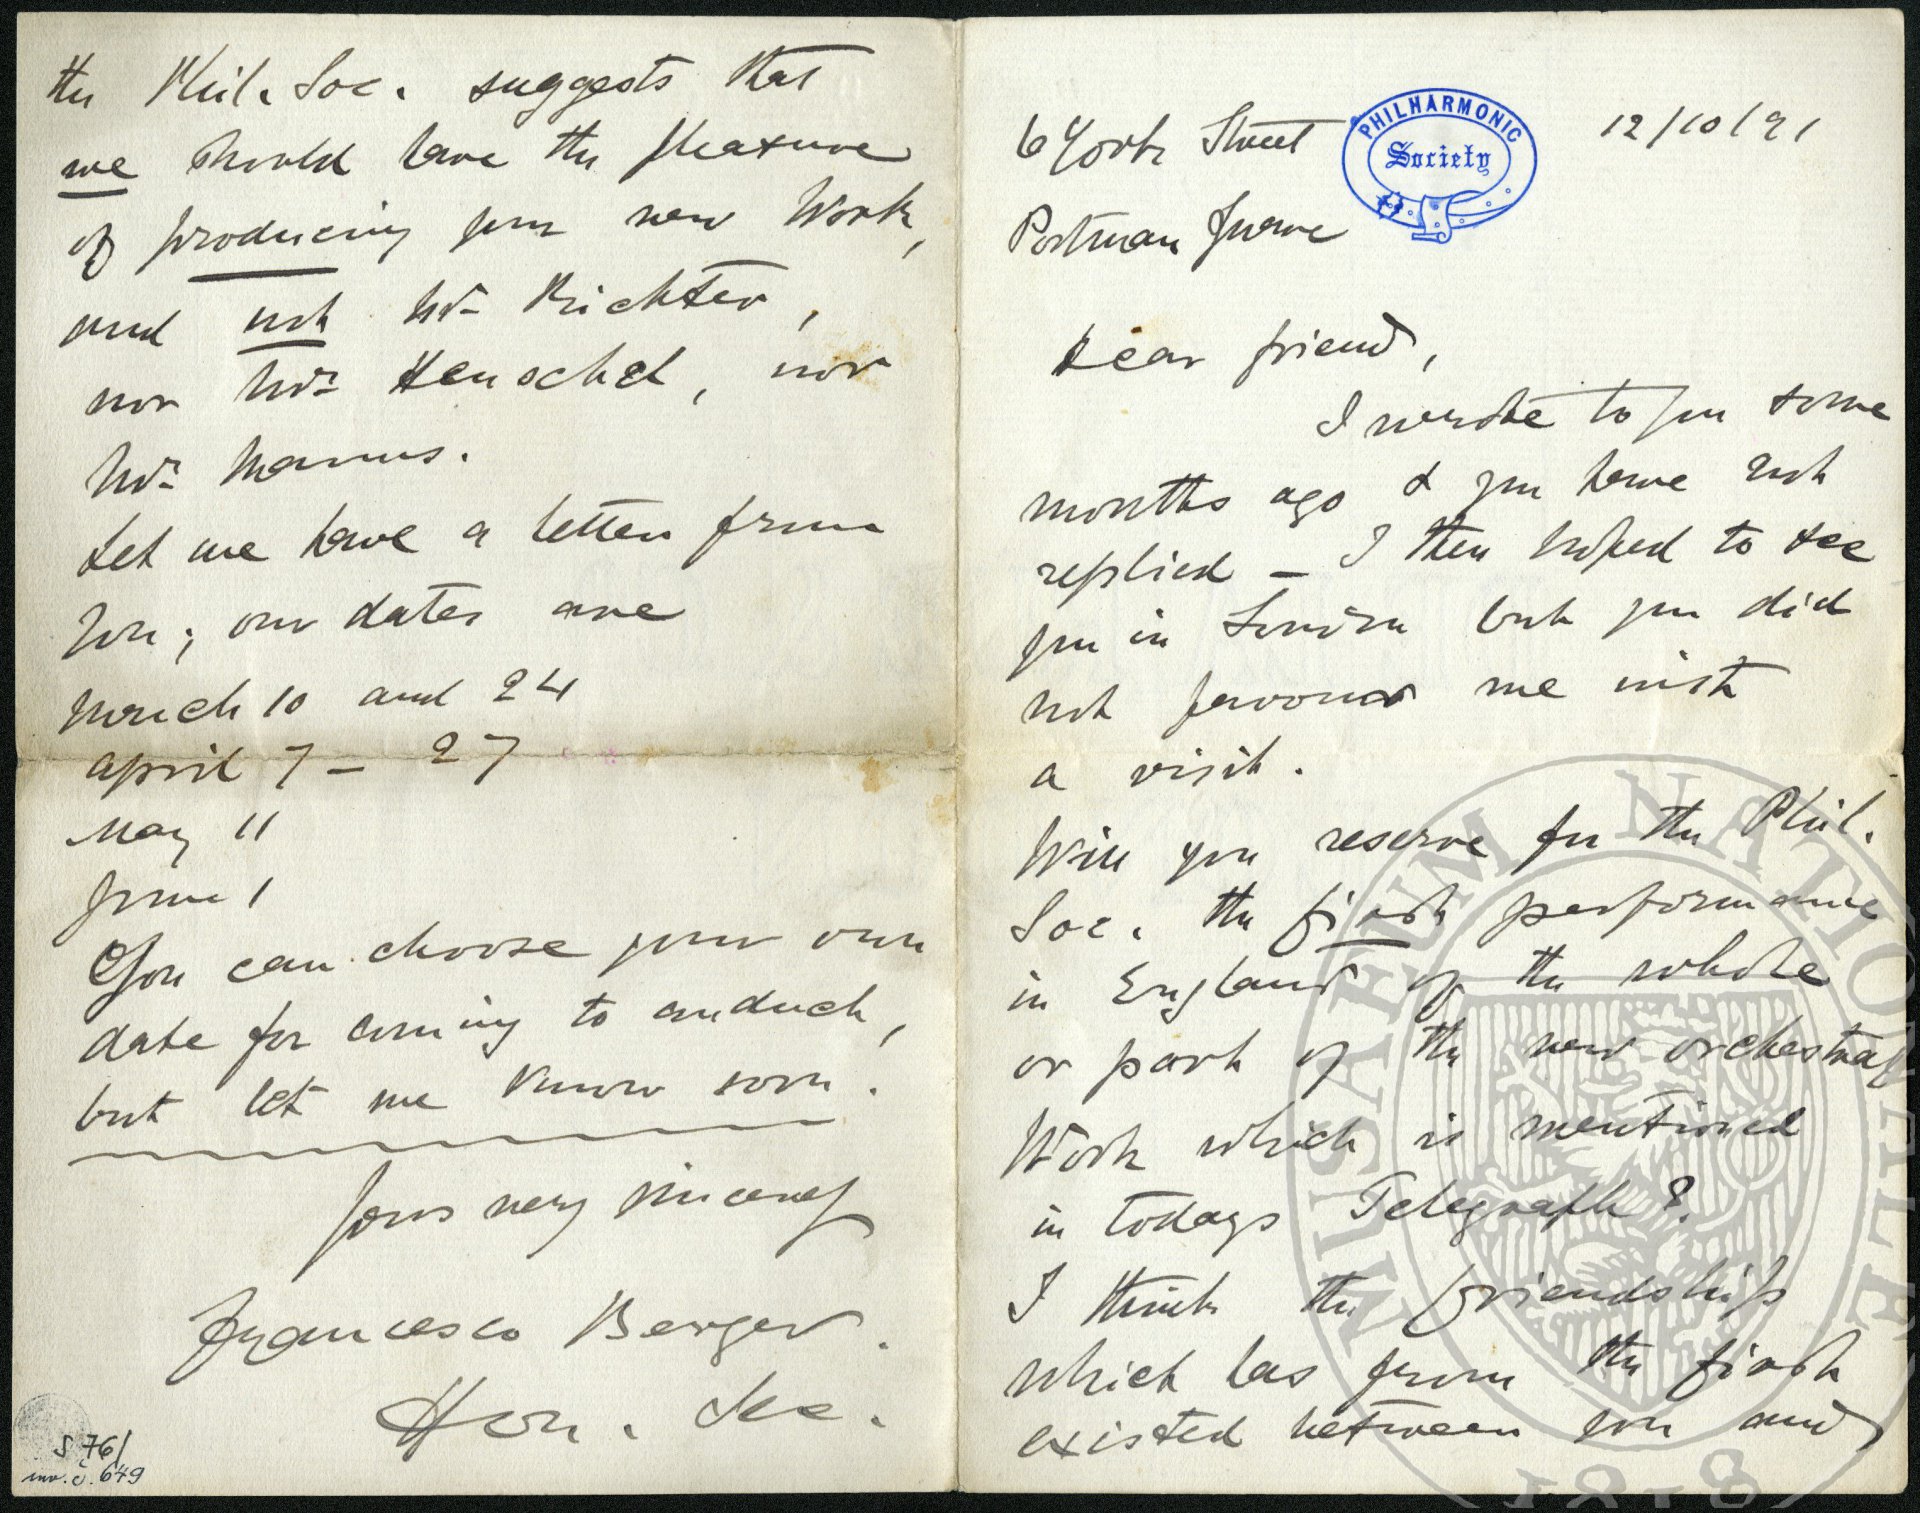 6 York Street
12/10/91
PHILHARMONIC
Society
Portman Square
Dear friend,
I wrote to you some
months ago & you have not
replied – I then hoped to see
you in London but you did
not favour me with
a visit.
Will you reserve for the Phil.
Soc. the first performance
in England of the whole
or part of the new orchestral
Work which is mentioned
in todays Telegraph?
I think the friendship
which has from the first
existed between you and
the Phil. Soc. suggests that
we should have the pleasure
of producing your new Work,
and not Mr. Richter,
nor Mr. Henschel, nor
Mr. Manns.
Let me have a letter from
you; our dates are
March 10 and 24
April 7 – 27
May 11
June 1
You can choose your own
date for coming to conduct,
but let me know soon.
Yours very sincerely
Francesco Berger.
Hon. Sec.
S 76/
inv. č. 649
MUSAEUM NATIONALE
1818